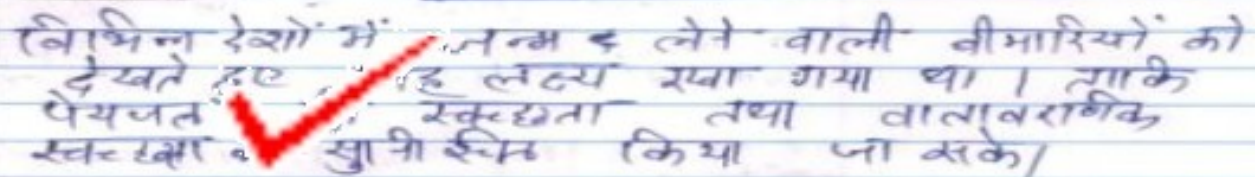 विभिन्न देशों में जन्म लेने वाली बीमारियों को
देखते हुए लक्ष्य रखा गया था । ताकि
पेयजल स्वच्छता तथा वातावरणिक
स्वच्छता सुनिश्चित किया जा सके।